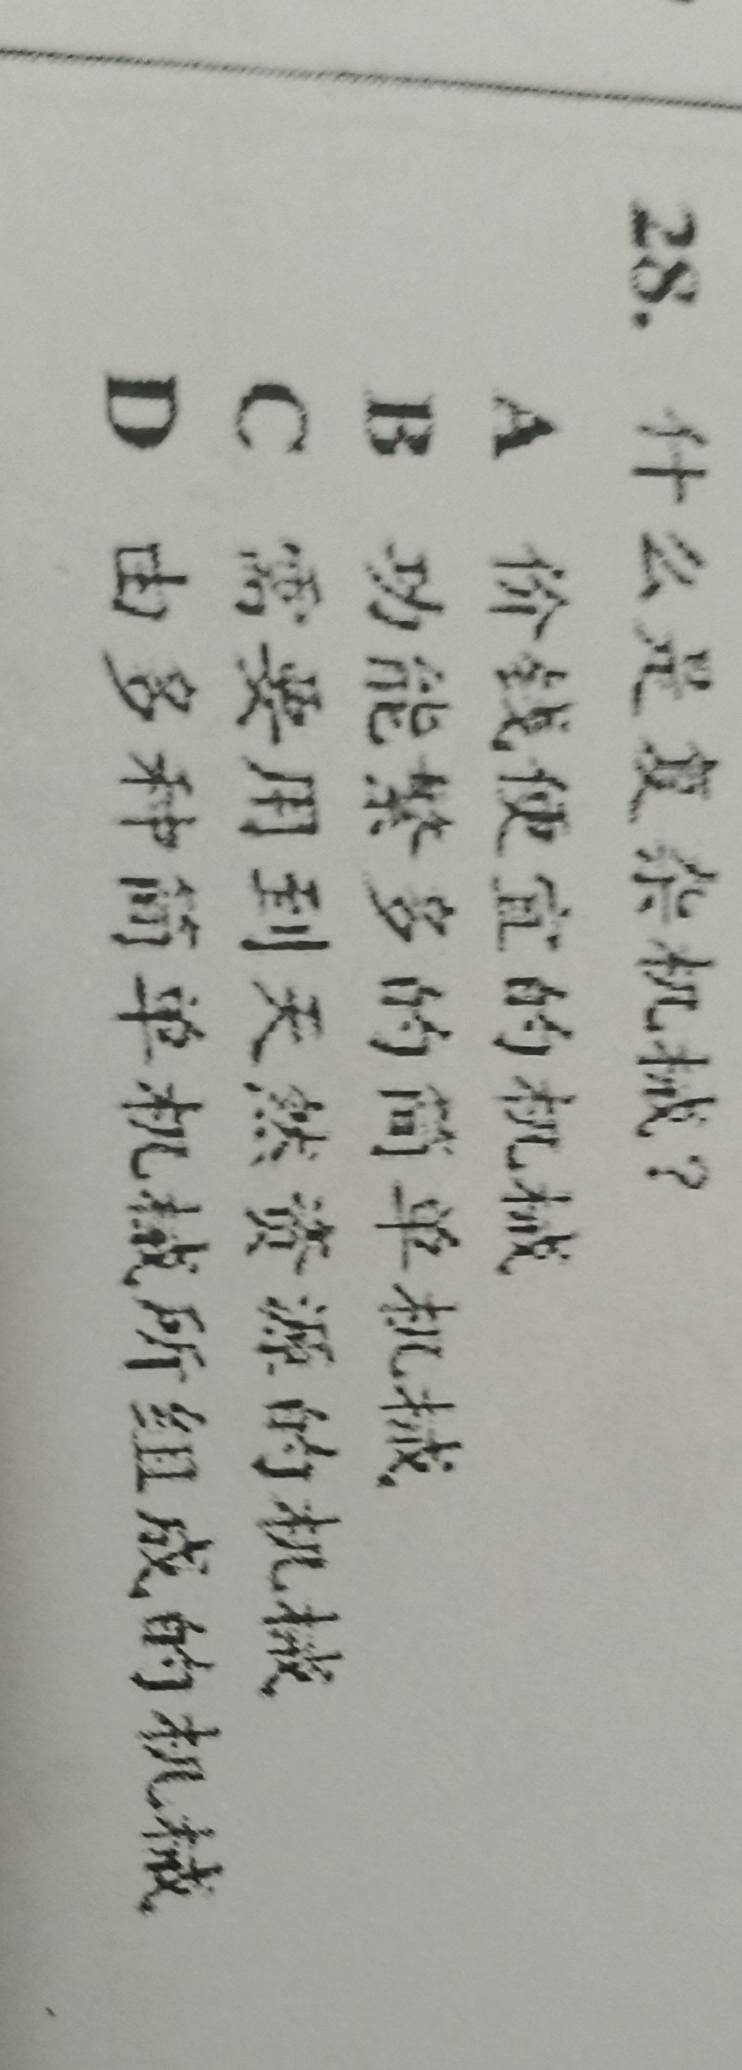 28. 什么是复杂机械？
A 价钱便宜的机械
B 功能繁多的简单机械
C 需要用到天然资源的机械
D 由多种简单机械所组成的机械